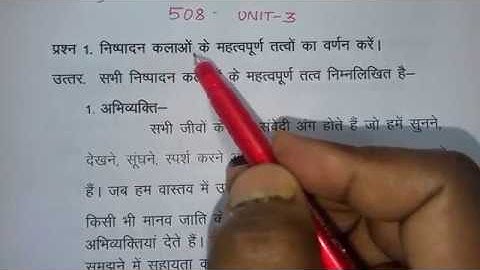 508- UNIT-3
प्रश्न 1. निष्पादन कलाओं के महत्वपूर्ण तत्वों का वर्णन करें।
उत्तर. सभी निष्पादन के महत्वपूर्ण तत्व निम्नलिखित है–
1. अभिव्यक्ति–
सभी जीवों के संवेदी अंग होते हैं जो हमें सुनने,
देखने, सूंघने, स्पर्श करने
हैं। जब हम वास्तव में
किसी भी मानव जाति के
अभिव्यक्तियां देते हैं।
समझने में सहायता